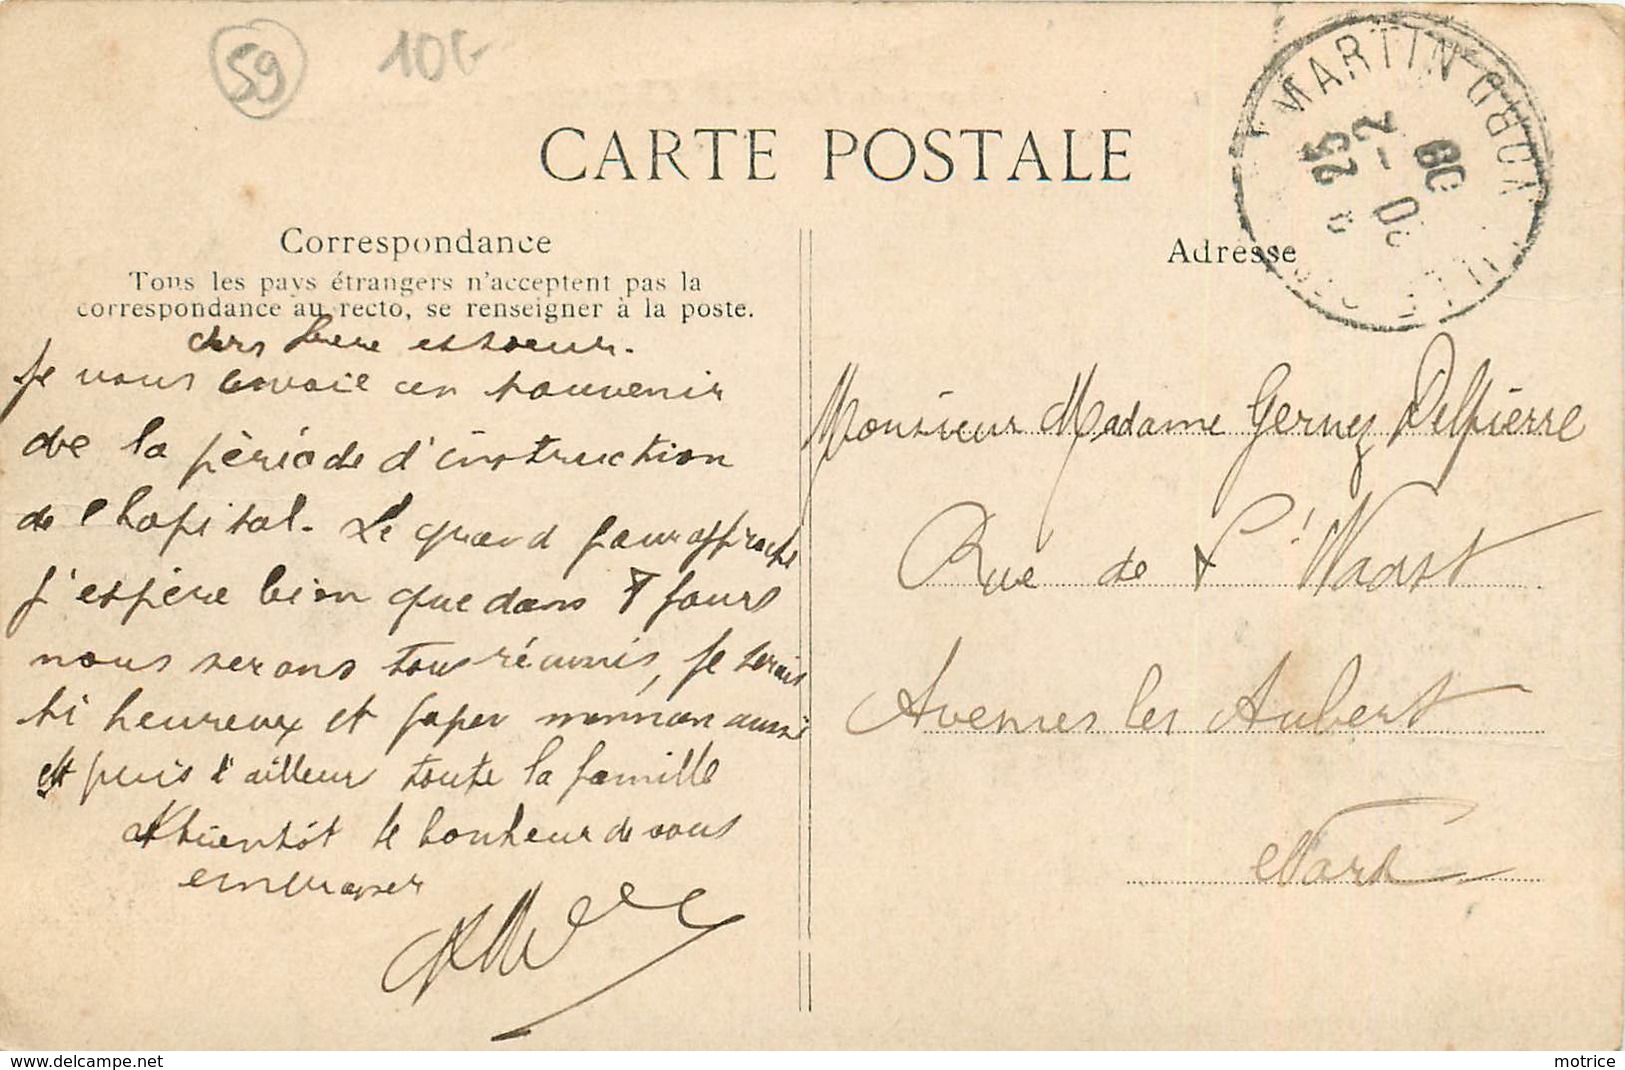 59
10F
CARTE POSTALE
Correspondance
Tous les pays étrangers n'acceptent pas la
correspondance au recto, se renseigner à la poste.
Adresse
MARTIN
25
chers frere et soeur.
Je vous envoie un souvenir
de la période d'instruction
de l hopital. Le grand jour approche
j'espère bien que dans 8 jours
nous serons tous réunis, je serais
si heureux et papa maman aussi
et puis d'ailleur toute la famille
A bientôt le bonheur de vous
embrasser
Monsieur Madame Gernez Delpierre
Rue de St Waast
Avesnes les Aubert
Nord
www.delcampe.net
motrice